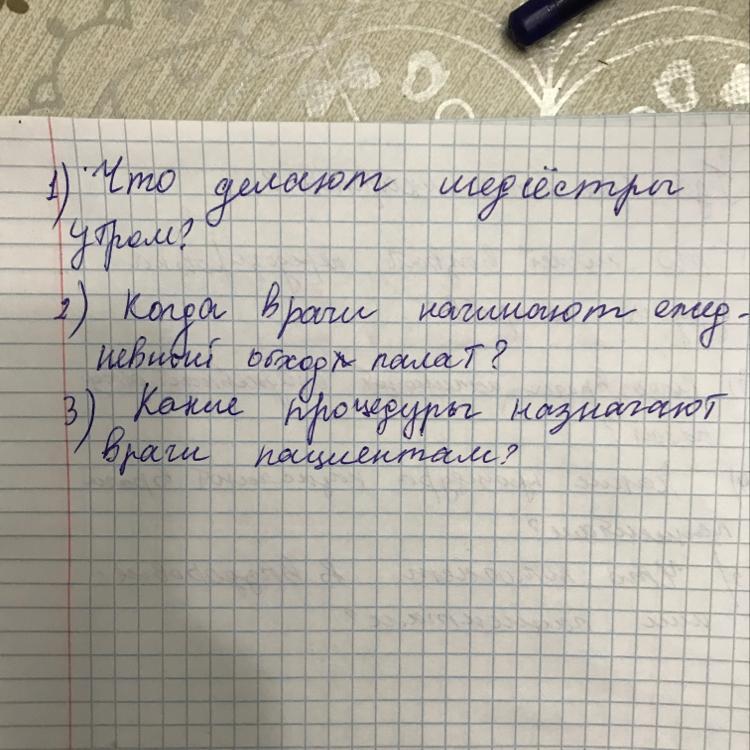 1) Что делают медсёстры
утром?
2) Когда врачи начинают ежед-
невный обход палат?
3) Какие процедуры назначают
врачи пациентам?